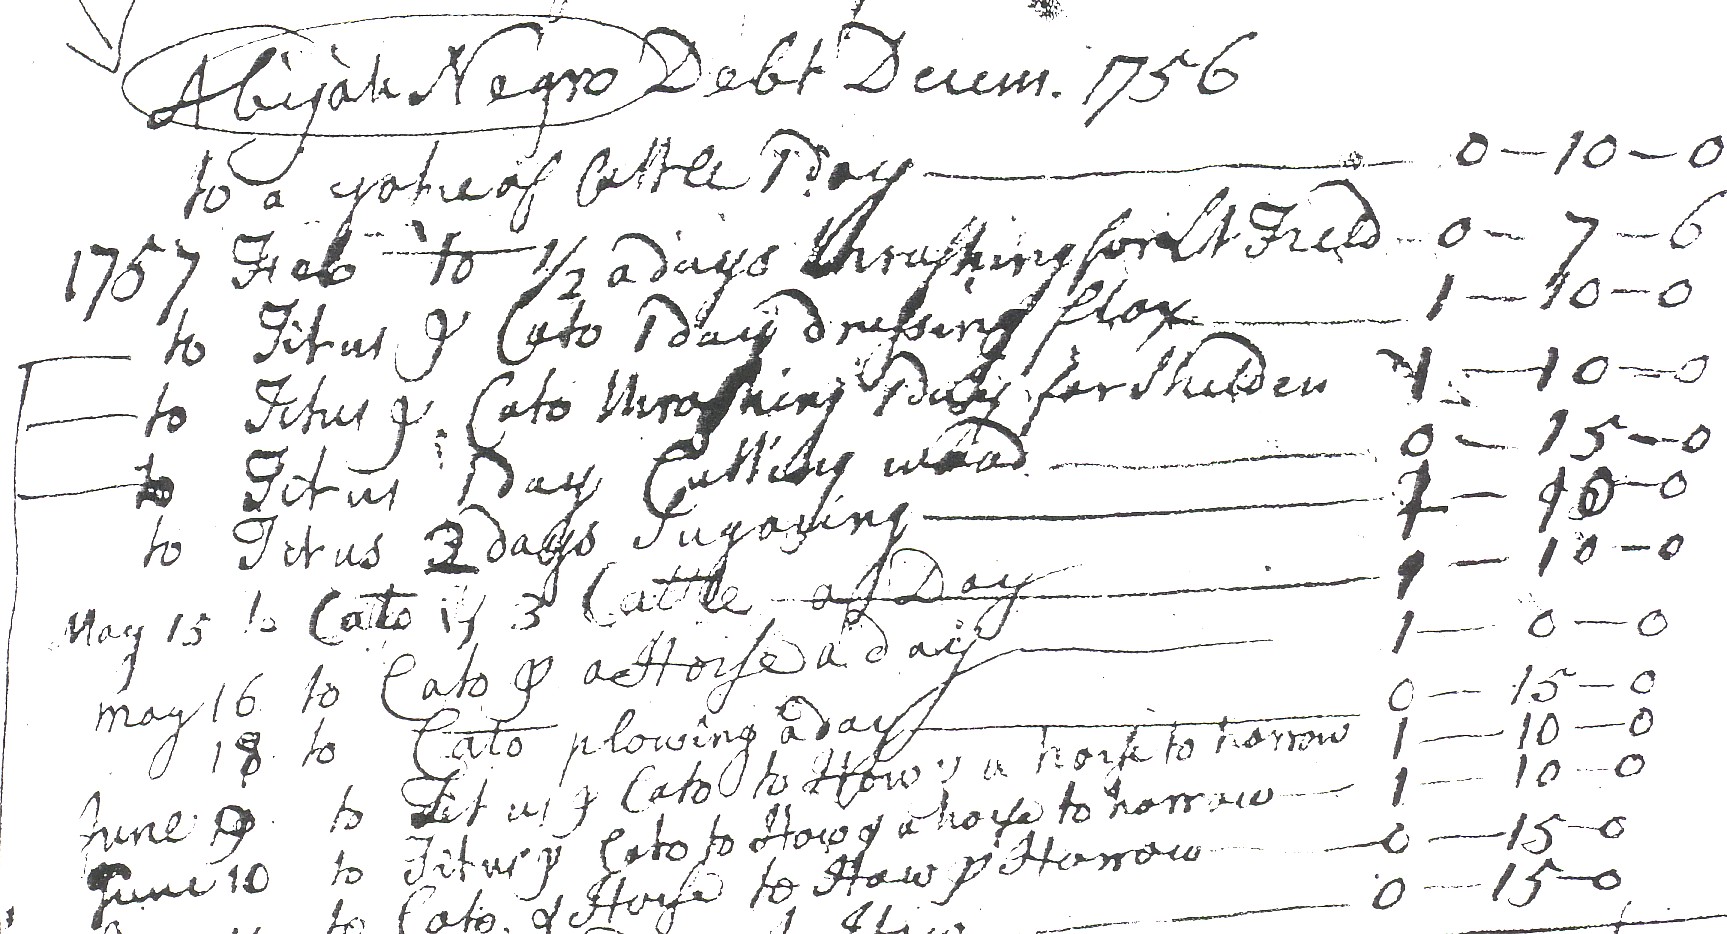 Abijah Negro Debt Decem. 1756
to a yoke of Cattle 1 day 0-10-0
1757 Feb to 1/2 a days thrashing for Lt Field 0-7-6
to Titus & Cato 1 day dressing flax 1-10-0
to Titus & Cato thrashing 1 day for Shelden 1-10-0
to Titus 1 Day Cutting wood 0-15-0
to Titus 2 days Sugaring 1-10-0
May 15 to Cato & 3 Cattle a Day 1-10-0
may 16 to Cato & a Horse a day 1-0-0
18 to Cato plowing a day 0-15-0
June 9 to Titus & Cato to How & a horse to harrow 1-10-0
June 10 to Titus & Cato to How & a horse to harrow 1-10-0
to Cato & Horse to How & Harrow 0-15-0
0-15-0